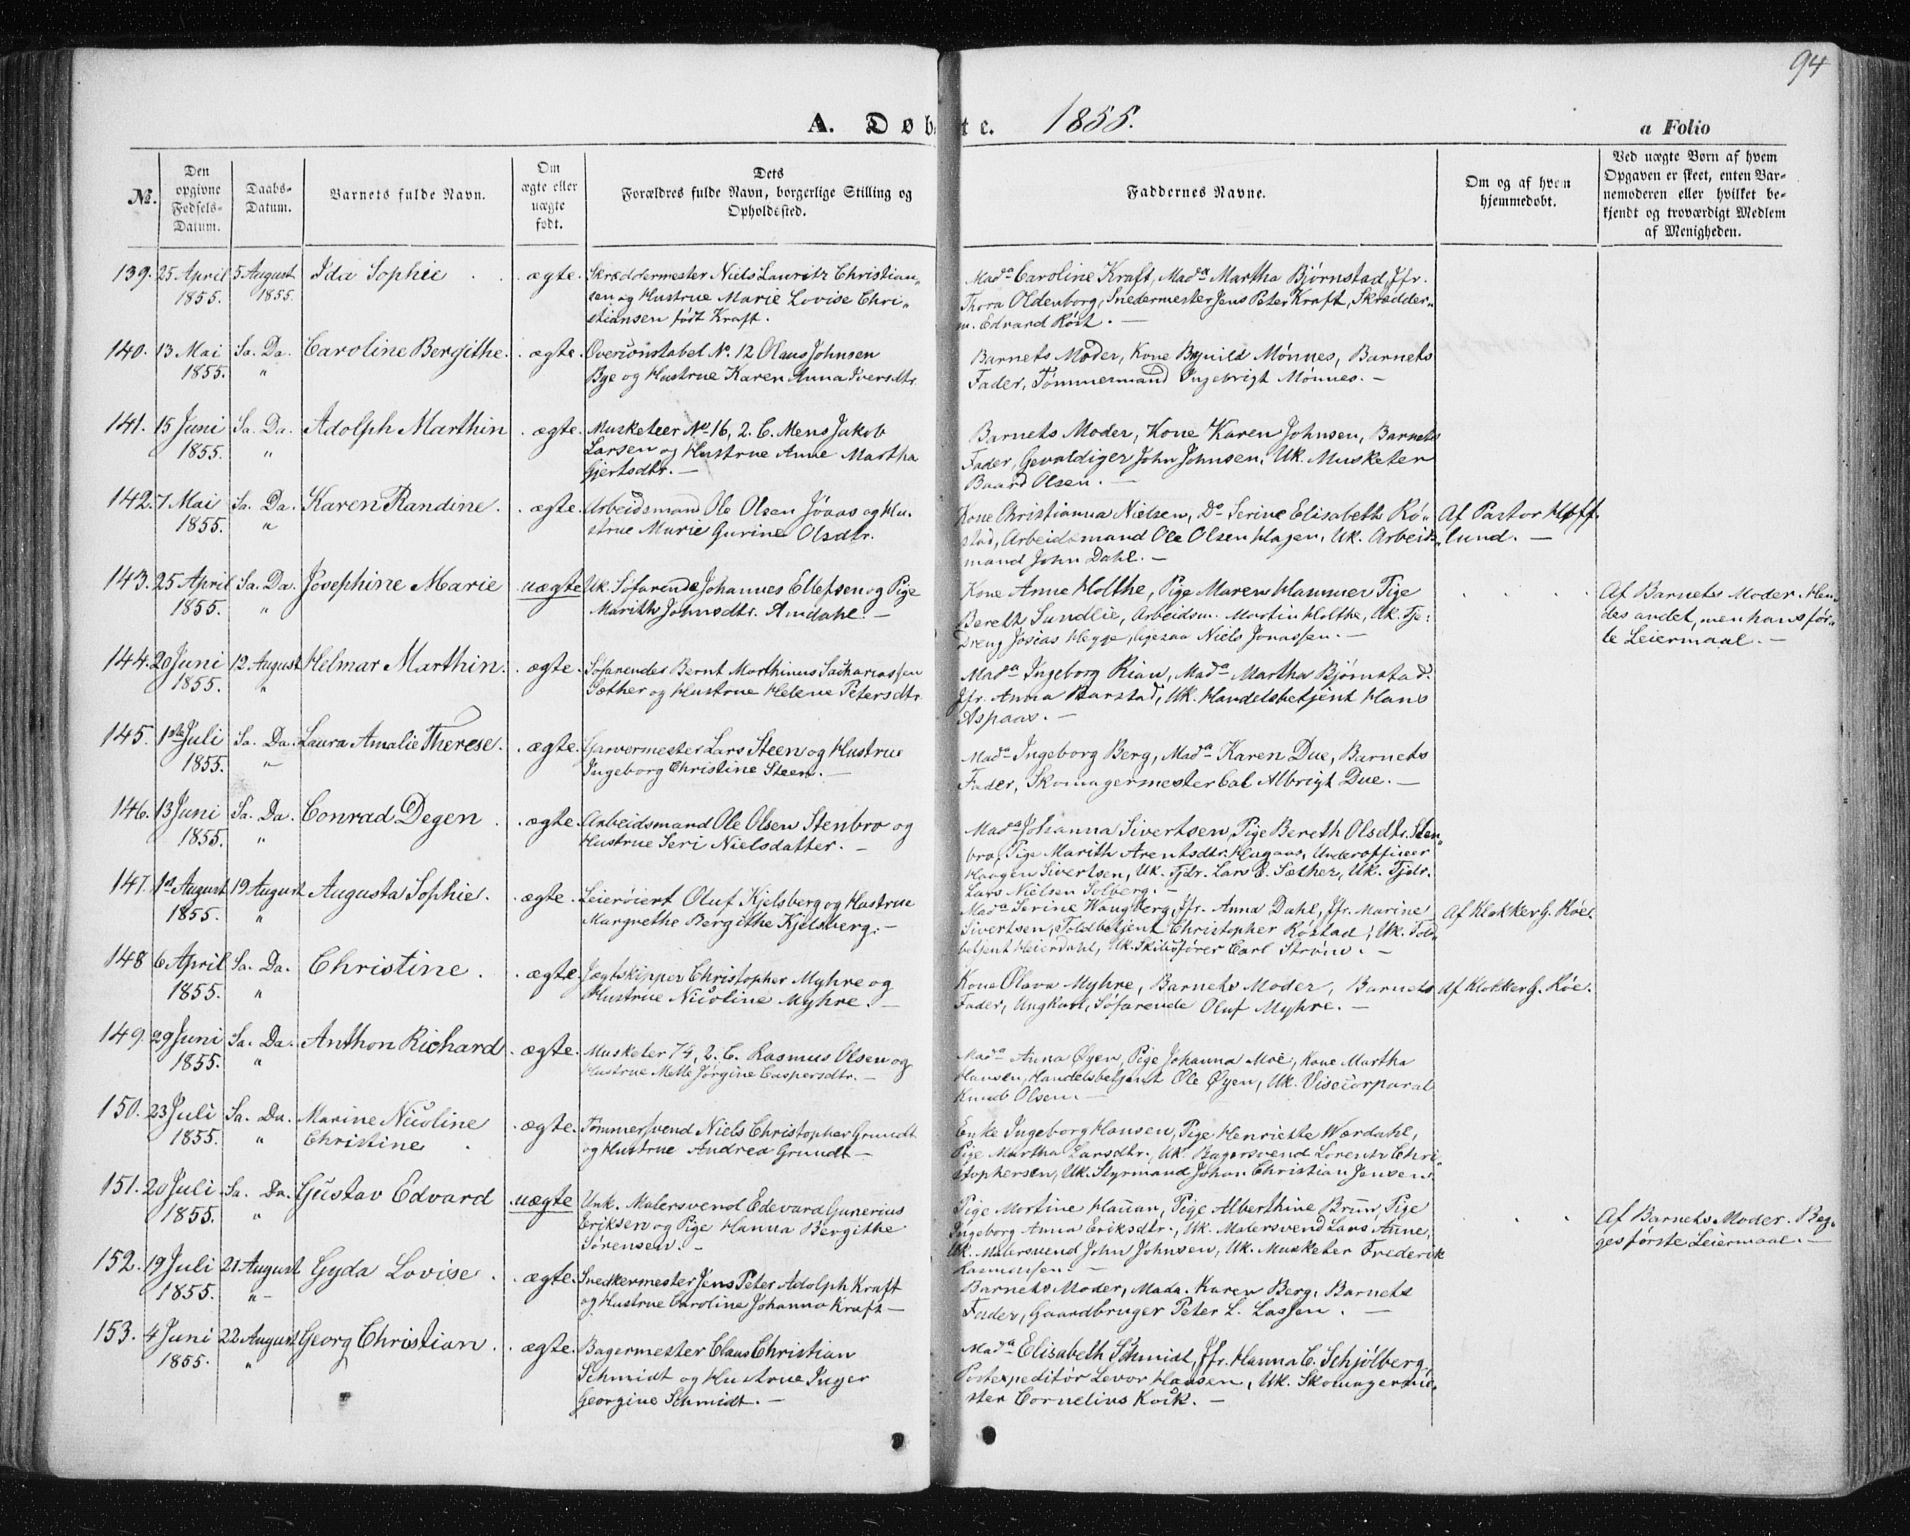 94
A. Døbte. 1855. a Folio
№.
Den opgivne Fødsels-Datum.
Daabs-Datum.
Barnets fulde Navn.
Om ægte eller uægte født.
Dets Forældres fulde Navn, borgerlige Stilling og Opholdssted.
Faddernes Navne.
Om og af hvem hjemmedøbt.
Ved uægte Børn af hvem Opgaven er skeet, enten Barnemoderen eller hvilket bekjendt og troværdigt Medlem af Menigheden.
139. 25 April 1855. 5 August 1855. Ida Sophie . ægte.
Skræddermester Niels Lauritz Christian„
sen og Hustrue Marie Lovise Chri„
stiansen født Kraft.
Mada Caroline Kraft, Mada Martha Bjørnstad, Jfr.
Thora Oldenborg, Snedermester Jens Peter Kraft, Skrædder„
m. Edvard Röst. —
140. 13 Mai 1855. Sa. Da. „ Caroline Bergithe. . ægte.
Overconstabel No. 12 Olaus Johnsen
Bye og Hustrue Karen Anna Iversdtr.
Barnets Moder, Kone Bynild Mønnes, Barnets
Fader, Tømmermand Ingebrigt Mønnes. —
141. 15 Juni 1855. Sa. Da. „ Adolph Marthin . ægte.
Musketeer No 16, 2. C. Mens Jakob
Larsen og Hustrue Anne Martha
Gjertsdtr. —
Barnets Moder, Kone Karen Johnsen, Barnets
Fader, Gevaldiger John Johnsen, Uk. Musketer
Baard Olsen. —
142. 7 Mai 1855. Sa. Da. „ Karen Randine. . ægte.
Arbeidsmand Ole Olsen Jøaas og Hu„
strue Marie Gurine Olsdtr.
Kone Christianna Nielsen, Do Serine Elisabeth Rö„
stad, Arbeidsmand Ole Olsen Hagen, Uk. Arbeids„
mand John Dahl. —
Af Pastor Höff„
lund. —
143. 25 April 1855. Sa. Da. „ Josephine Marie uægte
Uk. Söfarende Johannes Ellefsen og Pige
Marith Johnsdtr. Amdahl. —
Kone Anne Holthe, Pige Maren Hammer Pige
Bereth Sundlie, Arbeidsm. Martin Holthe, Uk. Tje„
Dreng Josias Hegge, Niels Jonassen. —
Af Barnets Moder. Hen„
des andet, men hans för„
te Leiermaal. —
144. 20 Juni 1855. 12 August „ Helmar Marthin. . ægte.
Söfarendes Bernt Marthinus Sachariassen
Sæther og Hustrue Helene Petersdtr.
Mada Ingeborg Rian, Mada Martha Bjørnstad.
Jfr. Anna Harstad, Uk. Handelsbetjent Hans
Aspaas. —
145. 1ste Juli 1855. Sa. Da. „ Laura Amalie Therese. . ægte.
Garvermester Lars Steen og Hustrue
Ingeborg Christine Steen. —
Mada Ingeborg Berg, Mada Karen Due, Barnets
Fader, Skomagermester Cal Albrigt Due. —
146. 13 Juni 1855. Sa. Da. „ Conrad Degen . ægte.
Arbeidsmand Ole Olsen Stenbro og
Hustrue Seri Nielsdatter. —
Mada Johanna Sivertsen, Pige Bereth Olsdtr. Sten„
bro, Pige Marith Arentsdtr. Hugaas, Underofficer
Haagen Sivertsen, Uk. Tjdr. Lars E. Sæther, Uk. Tjdr.
Lars Nielsen Solberg. —
147. 1st August 1855. 19 August „ Augusta Sophie. . ægte.
Leierøiert Oluf Kjelsberg og Hustrue
Margrethe Bergithe Kjelsberg. —
Mada Serine Waugberg, Jfr. Anna Dahl, Jfr. Marine
Sivertsen, Toldbetjent Christopher Röstad, Uk. Told„
betjent Heierdahl, Uk. Skibsförer Carl Ström. —
Af Klokker G. Röe.
148 6 April 1855. Sa. Da. „ Christine . ægte
Jægtskipper Christopher Myhre og
Hustrue Nicoline Myhre —
Kone Olava Myhre, Barnets Moder, Barnets
Fader, Ungkarl, Söfarende Oluf Myhre. —
Af Klokker G. Röe.
149. 29 Juni 1855. Sa. Da. „ Anthon Richard . ægte.
Musketer 74, 2. C. Rasmus Olsen og
Hustrue Mette Jörgine Caspersdtr. —
Mada Anna Øyen, Pige Johanna Moe, Kone Martha
Hansen, Handelsbetjent Ole Øyen, Uk. Visecorporal
Knud Olsen. —
150. 23 Juli 1855. Sa. Da. „ Marine Nicoline Christine . ægte.
Tömmersvend Niels Christopher Grundt
og Hustrue Andrea Grundt —
Enke Ingeborg Hansen, Pige Henriette Wærdahl,
Pige Martha Larsdtr., Uk. Bagersvend Lorents Chri„
stophersen, Uk. Styrmand Johan Christian Jensen.
151. 20 Juli 1855. Sa. Da. „ Gustav Edvard uægte
Unk. Malersvend Edevard Gunerius
Eriksen og Pige Hanna Bergithe
Sørensen. —
Pige Martine Hauan, Pige Alberthine Bruun, Pige
Ingeborg Anna Eriksdtr., Uk. Malersvend Lars Anne,
Uk. Malersvend John Johnsen, Uk. Musketer Frederik
Rasmussen. —
Af Barnets Moder. Beg„
ges første Leiermaal. —
152. 19 Juli 1855. 21 August „— Gyda Lovise . ægte.
Snedkermester Jens Peter Adolph Kraft
og Hustrue Caroline Johanna Kraft —
Barnets Moder, Mada. Karen Berg, Barnets
Fader, Gaardbruger Peter L. Lassen. —
153. 4 Juni 1855. 22 August „ Georg Christian . ægte.
Bagermester Claus Christian
Schmidt og Hustrue Inger
Georgine Schmidt. —
Mada Elisabeth Schmidt, Jfr. Hanna C. Schjølberg,
Postexpeditör Levor Hansen, Uk. Skomagerme„
ster Cornelius Koik. —